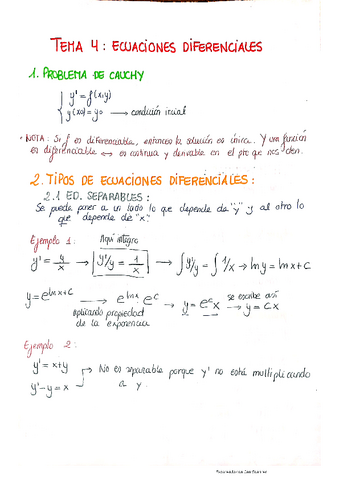 TEMA 4: ECUACIONES DIFERENCIALES
1. PROBLEMA DE CAUCHY
{ y' = f(x,y)
y(x0) = y0 → condición inicial
• NOTA: Si f es diferenciable, entonces la solución es única. Y una función
es diferenciable ↔ es continua y derivable en el pto que nos den.
2. TIPOS DE ECUACIONES DIFERENCIALES:
2.1 ED. SEPARABLES:
Se puede poner a un lado lo que depende de "y" y al otro lo
que depende de "x".
Ejemplo 1: Aquí integro
y' = y/x → y'/y = 1/x → ∫y'/y = ∫1/x → ln y = ln x + C
y = e^(ln x + C) → e^(ln x) e^C → y = e^C x se escribe así → y = Cx
aplicando propiedad
de la exponencial
Ejemplo 2:
y' = x+y → No es separable porque y' no está multiplicando
y' - y = x a y.